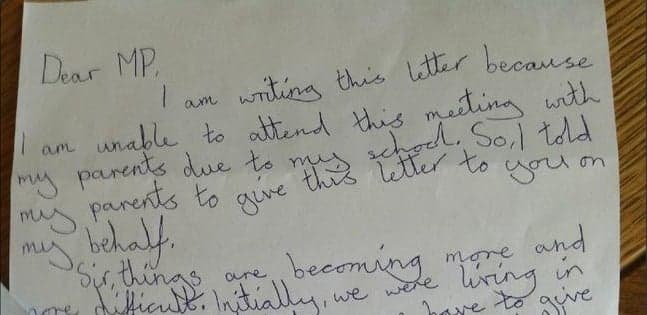 Dear MP,
I am writing this letter because
I am unable to attend this meeting with
my parents due to my school. So, I told
my parents to give this letter to you on
my behalf.
Sir, things are becoming more and
more difficult. Initially, we were living in
have to give